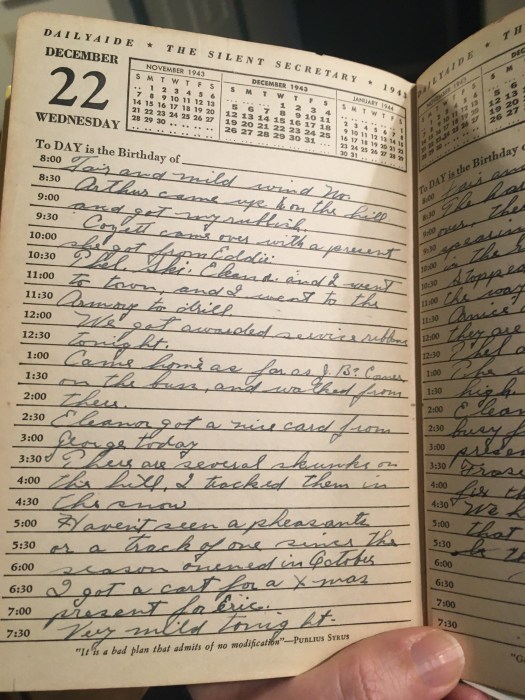 DAILYAIDE ★ THE SILENT SECRETARY ★ 194
DECEMBER
22
WEDNESDAY
NOVEMBER 1943
S M T W T F S
.. 1 2 3 4 5 6
7 8 9 10 11 12 13
14 15 16 17 18 19 20
21 22 23 24 25 26 27
28 29 30 .. .. .. ..
DECEMBER 1943
S M T W T F S
.. .. .. 1 2 3 4
5 6 7 8 9 10 11
12 13 14 15 16 17 18
19 20 21 22 23 24 25
26 27 28 29 30 31 ..
JANUARY 1944
S M T W T F S
.. .. .. .. .. .. 1
2 3 4 5 6 7 8
9 10 11 12 13 14 15
16 17 18 19 20 21 22
23 24 25 26 27 28 29
30 31 .. .. .. .. ..
To DAY is the Birthday of
8:00 Fair and mild wind
8:30 Arthur came up on the hill
9:00 and got my rubbish.
9:30 came over with a present
10:00 she got from Eddie.
10:30 Phel, Ski, and I went
11:00 to town, and I went to the
11:30 Armory to drill
12:00 We got awarded service ribbons
12:30 tonight.
1:00 Came home as far as J. B.
1:30 on the bus, and walked from
2:00 there.
2:30 Eleanor got a nice card from
3:00 George today
3:30 There are several skunks on
4:00 the hill, I tracked them in
4:30 the snow
5:00 Havent seen a pheasante
5:30 or a track of one since the
6:00 season opened in October
6:30 I got a cart for a X-mas
7:00 present for Eric.
7:30 Very mild tonight.
"It is a bad plan that admits of no modification"—PUBLIUS SYRUS
DAILYAIDE ★ TH
To DAY is the Birthday o
8:00 Fair
8:30
9:00
9:30
10:00 in the
10:30 Stopped
11:00 the way
11:30
12:00 they are
12:30
1:00
1:30 high.
2:00
2:30 busy
3:00
3:30
4:00 for th
4:30
5:00 that
5:30
6:00
6:30
7:00
7:30